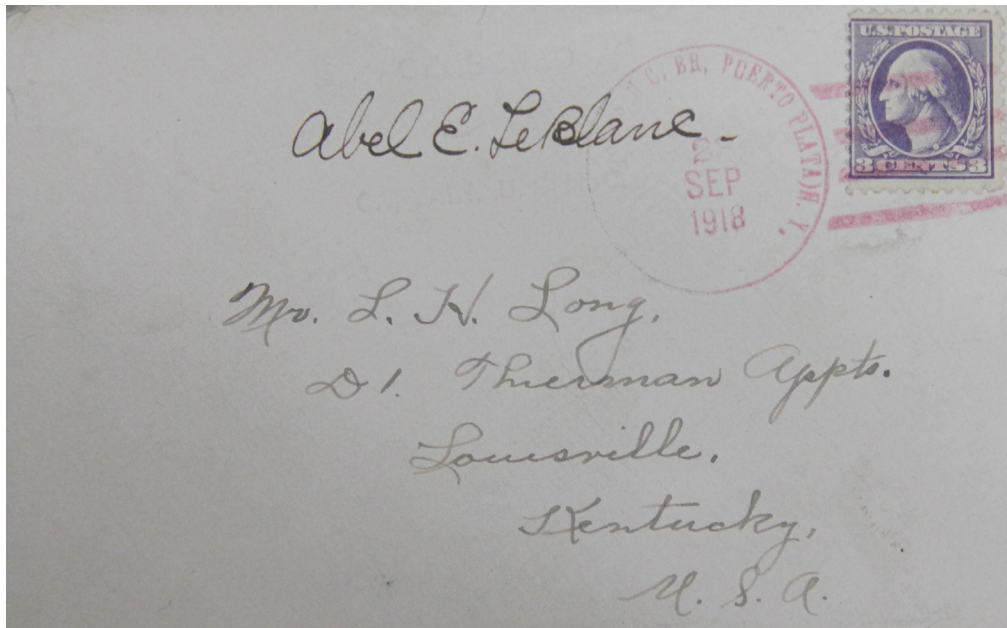 U.S. POSTAGE
3 CENTS 3
C. BR, PUERTO PLATA) N. Y.
SEP
1918
Abel E. LeBlanc -
Mr. L. H. Long,
D1. Thierman Appts.
Louisville,
Kentucky,
U. S. A.